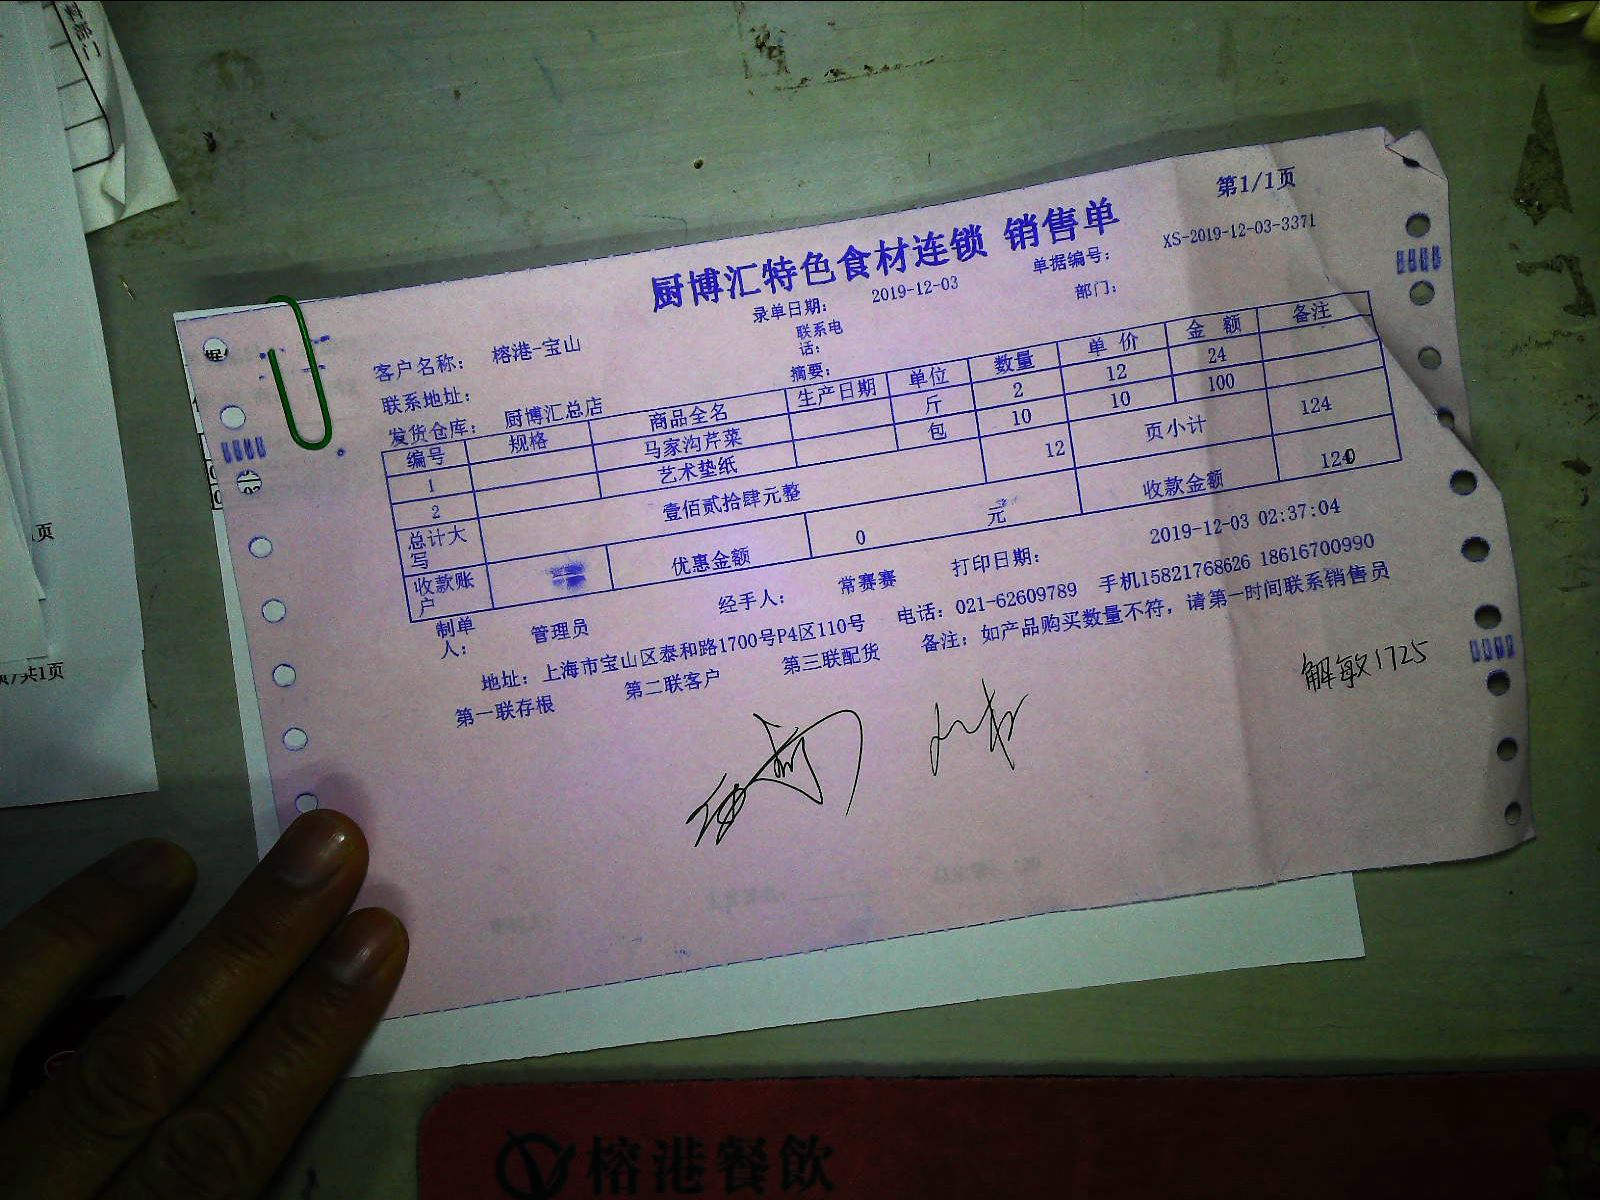 第1/1页
厨博汇特色食材连锁 销售单
录单日期: 2019-12-03 单据编号: XS-2019-12-03-3371
客户名称: 榕港-宝山 联系电话: 部门:
联系地址: 摘要:
发货仓库: 厨博汇总店
编号 规格 商品全名 生产日期 单位 数量 单价 金额 备注
1 马家沟芹菜 斤 2 12 24
2 艺术垫纸 包 10 10 100
总计大写 壹佰贰拾肆元整 12 页小计 124
收款账户 优惠金额 0 元 收款金额
制单人: 管理员 经手人: 常赛赛 打印日期: 2019-12-03 02:37:04
地址: 上海市宝山区泰和路1700号P4区110号 电话: 021-62609789 手机15821768626 18616700990
第一联存根 第二联客户 第三联配货 备注: 如产品购买数量不符, 请第一时间联系销售员
解敏1725
榕港餐飲
页
共1页